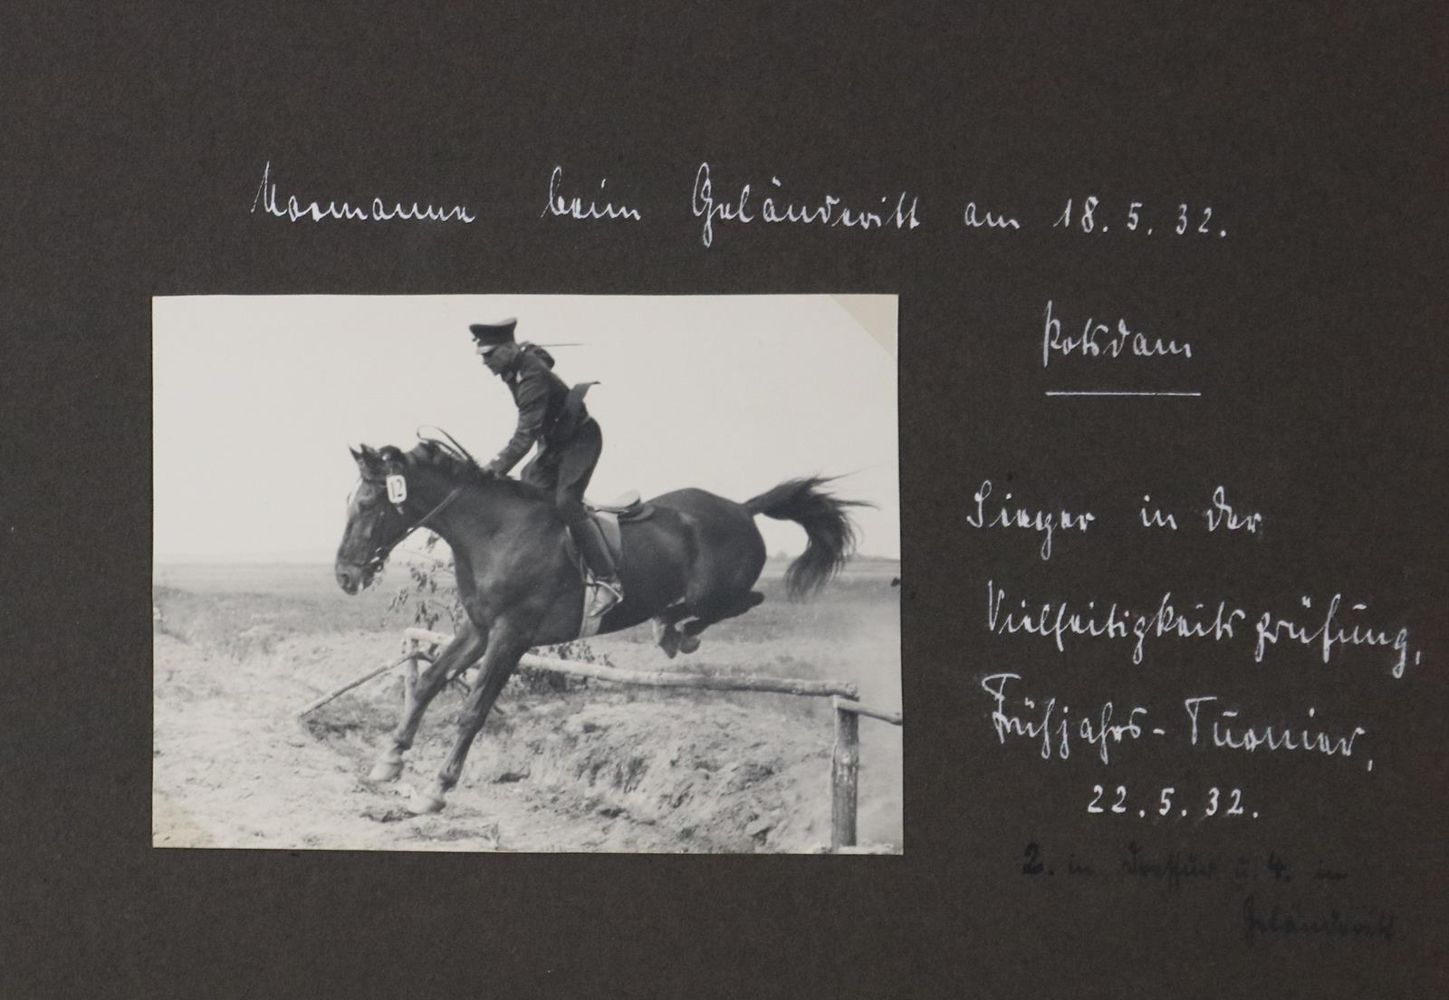 Normanne beim Geländeritt am 18.5.32.
Potsdam
12
Sieger in der
Vielseitigkeitsprüfung,
Frühjahrs-Turnier,
22.5.32.
2. in Dressur u. 4. in
Geländeritt